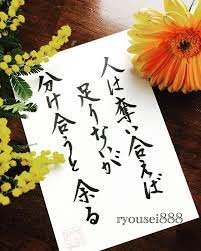 人は奪い合えば
足りないが
分け合うと余る
ryousei888